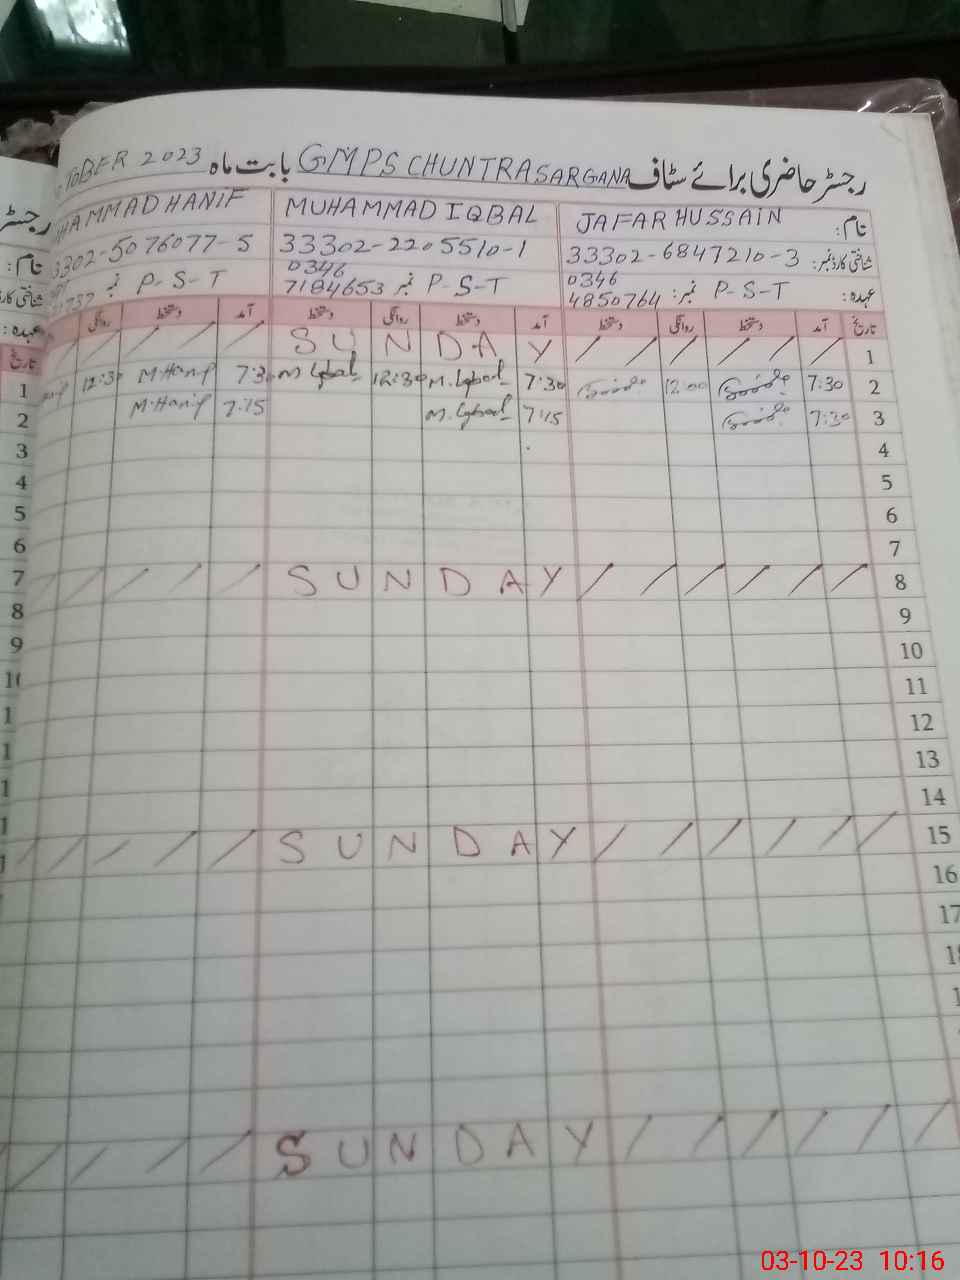 رجسٹر حاضری برائے سٹاف GMPS CHUNTRA SARGANA بابت ماہ OCTOBER 2023
نام: JAFAR HUSSAIN MUHAMMAD IQBAL MUHAMMAD HANIF
شناختی کارڈ نمبر: 33302-6847210-3 33302-2205510-1 3302-5076077-5
عہدہ: P-S-T نمبر: 0346 4850764 P-S-T نمبر 0346 7184653 P-S-T نمبر
تاریخ آمد دستخط روانگی دستخط آمد دستخط روانگی دستخط آمد دستخط روانگی
1 SUNDAY
2 7:30 12:00 7:30 M. Iqbal 12:30 M. Iqbal 7:30 M. Hanif 12:30
3 7:30 7:15 M. Iqbal 7:15 M. Hanif
4
5
6
7
8 SUNDAY
9
10
11
12
13
14
15 SUNDAY
16
17
SUNDAY
رجسٹر
نام:
عہدہ:
تاریخ
1
2
3
4
5
6
7
8
9
03-10-23 10:16